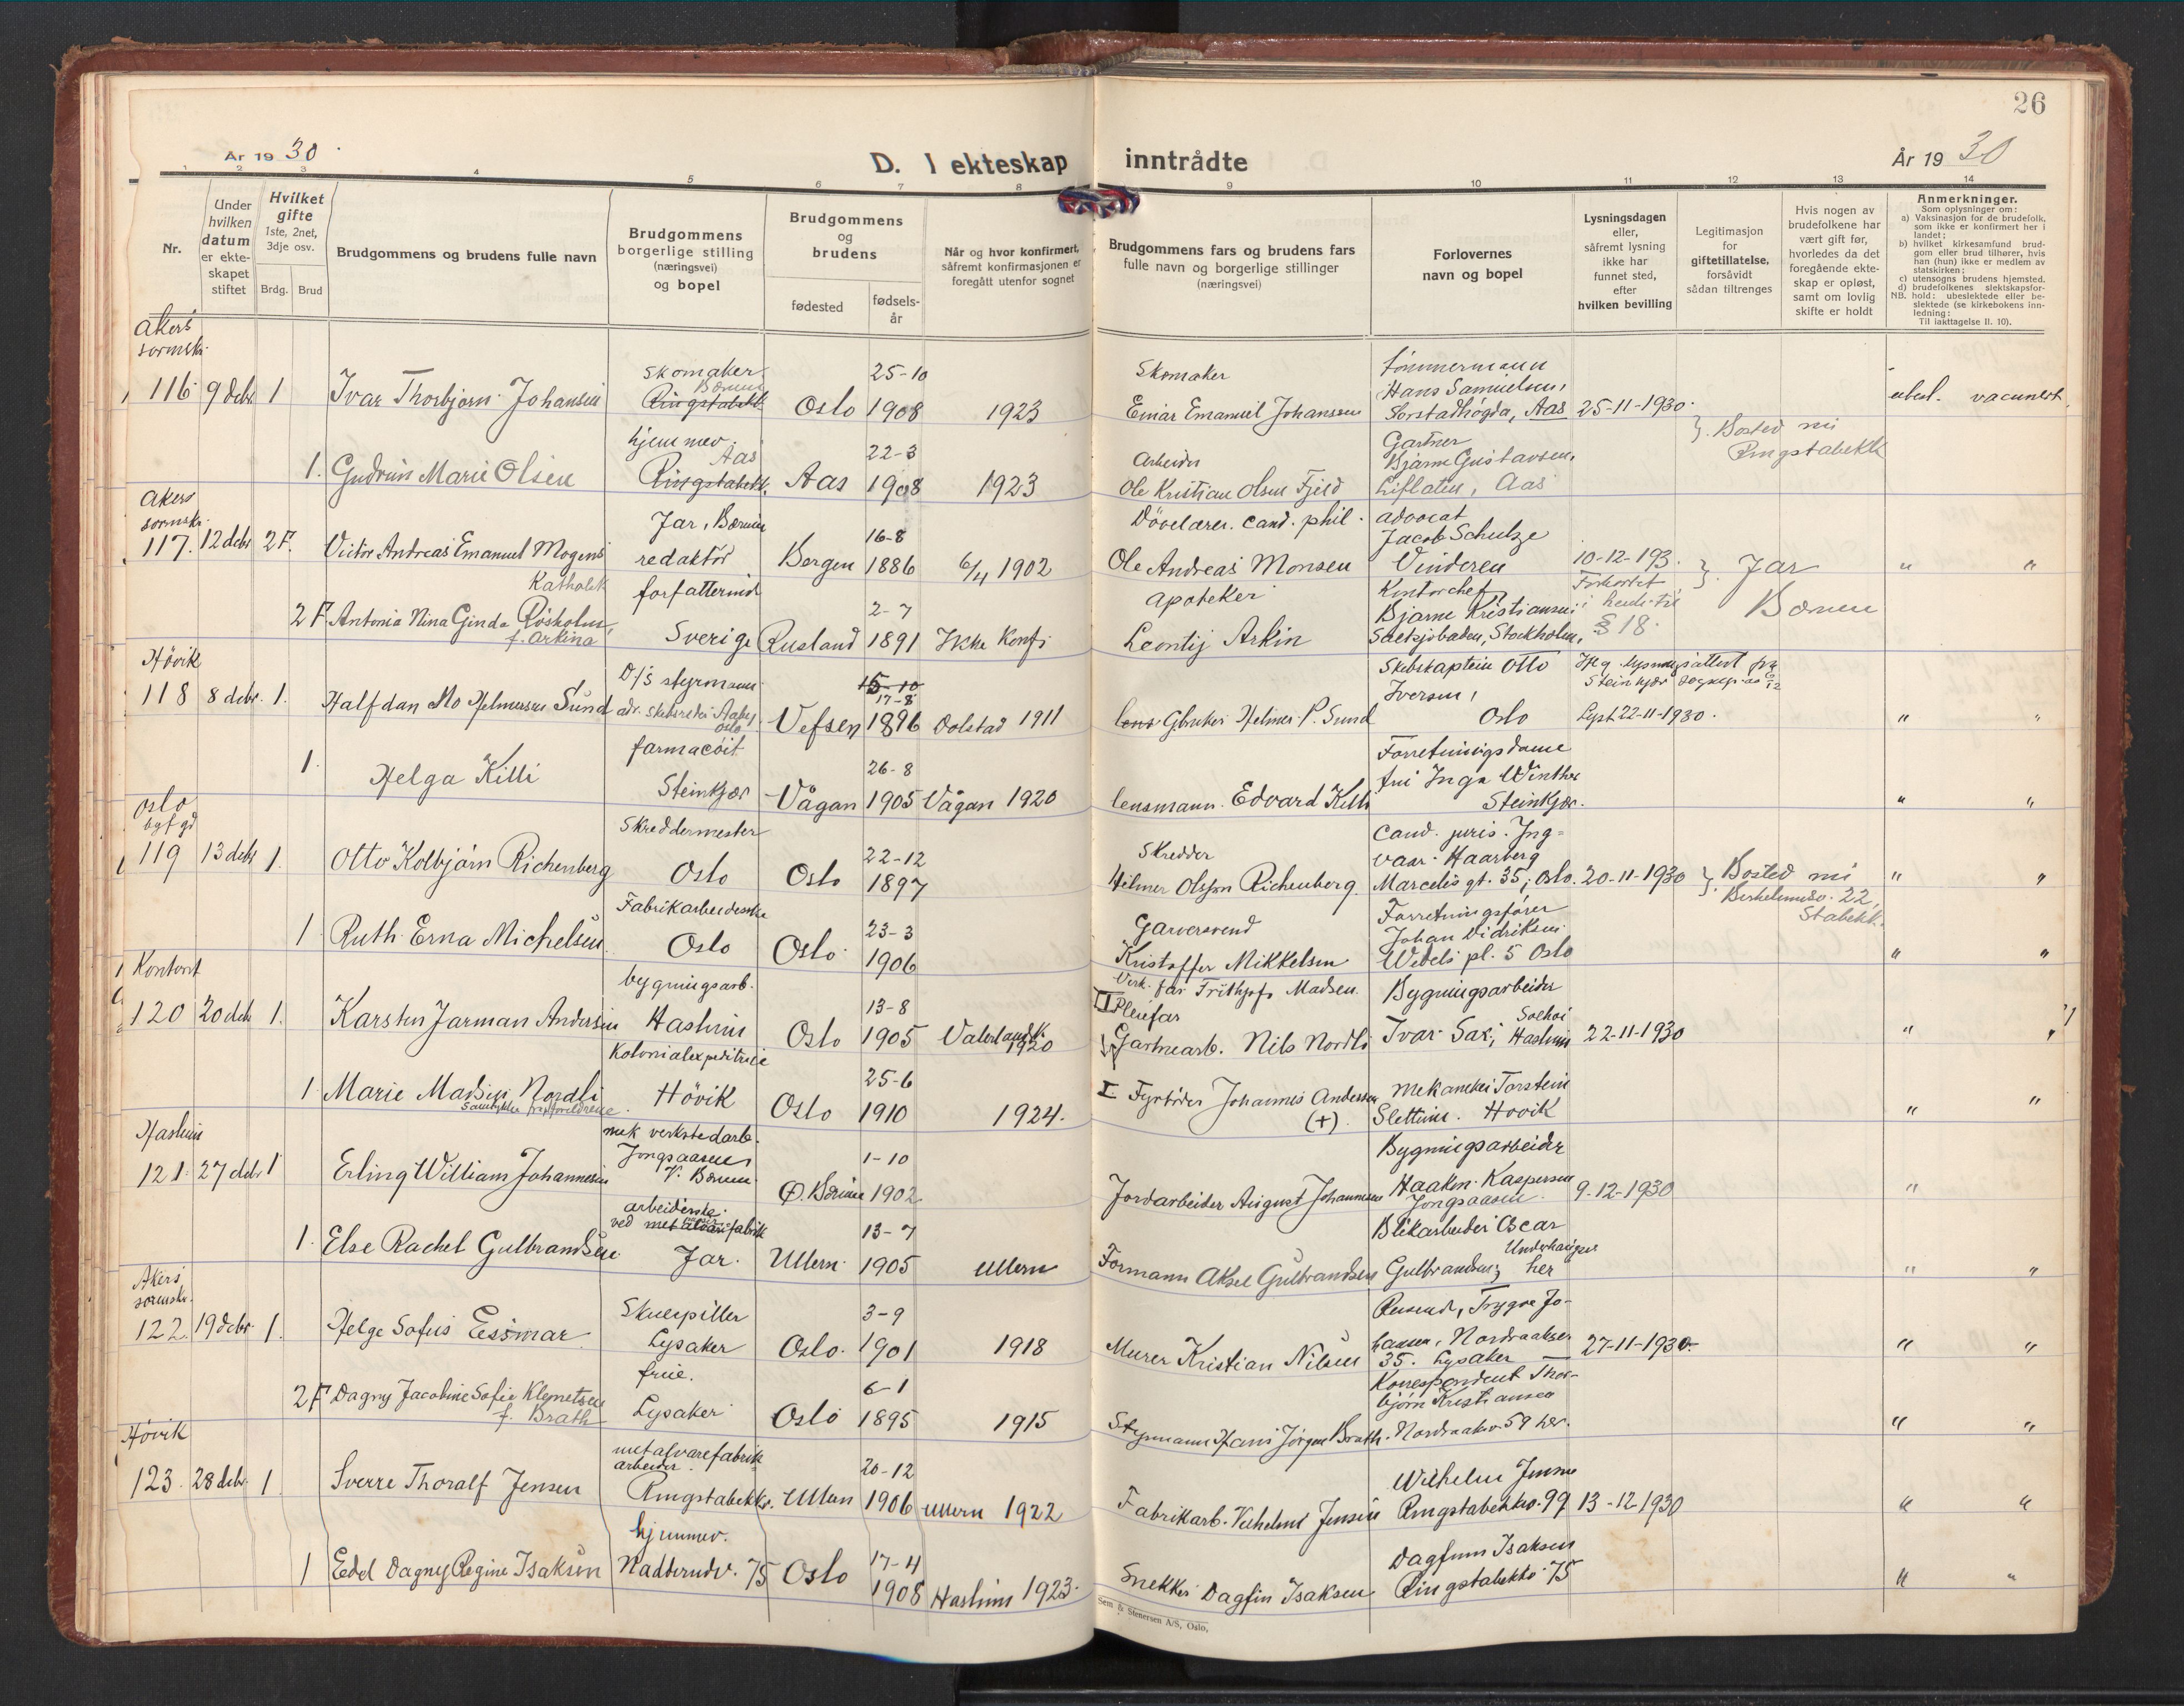 26
År 1930.
D. I ekteskap inntrådte
År 1930
1 2 3 4 5 6 7 8 9 10 11 12 13 14
Nr.
Under hvilken datum er ekteskapet stiftet
Hvilket gifte 1ste, 2net, 3dje osv.
Brdg. Brud
Brudgommens og brudens fulle navn
Brudgommens borgerlige stilling (næringsvei) og bopel
Brudgommens og brudens
fødested
fødselsår
Når og hvor konfirmert, såfremt konfirmasjonen er foregått utenfor sognet
Brudgommens fars og brudens fars fulle navn og borgerlige stillinger (næringsvei)
Forlovernes navn og bopel
Lysningsdagen eller, såfremt lysning ikke har funnet sted, efter hvilken bevilling
Legitimasjon for giftetillatelse, forsåvidt sådan tiltrenges
Hvis nogen av brudefolkene har vært gift før, hvorledes da det foregående ekteskap er opløst, samt om lovlig skifte er holdt
Anmerkninger.
Som oplysninger om:
a) Vaksinasjon for de brudefolk, som ikke er konfirmert her i landet;
b) hvilket kirkesamfund brudgom eller brud tilhører, hvis han (hun) ikke er medlem av statskirken;
c) utensogns brudens hjemsted.
d) brudefolkenes slektskapsforhold: ubeslektede eller beslektede (se kirkebokens innledning:
NB.
Til iakttagelse II. 10).
Akers sormskr.
116 9 debr 1 Ivar Thorbjørn Johansen skomaker Bærum Ringstabekk Oslo 25-10 1908 1923 Skomaker Einar Emanuel Johansen tømmermann Hans Samuelsen, Sorstadhøgda, Aas 25-11-1930. ubesl. vacunert.
1. Gudrun Marie Olsen hjemmev. Aas Ringstabekk. Aas 22-3 1908 1923 Arbeider Ole Kristian Olsen Fjeld Gartner Bjarne Gustavsen, Liflaten, Aas } Bosted Ringstabekk
Akers sormskr.
117. 12 debr 2F. Victor Andreas Emanuel Mogens Katholik Jar, Bærum redaktør Bergen 16-8 1886 6/4 1902 Døvelærer. cand. phil. Ole Andreas Monsen advocat Jacob Schulze Vinderen 10-12-193. } Jar Bærum " "
2F. Antonia Nina Ginda Røsholm, f. Arkina forfatterind Sverige Rusland 2-7 1891 Ikke Konf. Apoteker Leontij Arkin Kontorchef Bjarne Kristiansen Saltsjøbaden, Stockholm, § 18.
Høvik
118 8 debr. 1. Halfdan Mo Helmersen Sund D/S styrmann adr. Skibsrederi Aaby Oslo Vefsen 15-10 17-8 1896 Dolstad 1911 Gbruker Helmer P. Sund Skibskaptein Otto Iversen, Oslo Lyst 22-11-1930. " "
1. Helga Killi farmacøit Steinkjær Vågan 26-8 1905 Vågan 1920 lensmann Edvard Killi Forretningsdame fru Inga Winther Steinkjær. " "
Oslo byfgd
119 13 debr 1. Otto Kolbjørn Richenberg Skreddermester Oslo Oslo 22-12 1897 Skredder Hilmer Olsson Richenberg. Cand. juris. Ingvar Haarberg Marcelis gt. 35, Oslo. 20-11-1930 } Bosted 22, Stabekk. " "
1 Ruth Erna Michelsen. Fabrikarbeiderske Oslo Oslo 23-3 1906 Garversvend Kristoffer Mikkelsen Forretningsfører Johan Didriksen Wedels pl. 5 Oslo " "
Kontoret
120 20 debr 1. Karsten Jarman Andersen bygningsarb. Haslum Oslo 13-8 1905 Vaterland k. 1920 II Virk. far Frithjofs Madsen. Pleiefar Gartnerarb. Nils Nordli Bygningsarbeider Ivar Sax, Solhoi Haslum 22-11-1930 " "
1. Marie Madsen Nordli Kolonialexpeditrice Høvik Oslo 25-6 1910 1924. I Fyrbøder Johannes Andersen (+). Mekaniker Torstein Slettum. Høvik " "
Haslum
121. 27 debr 1 Erling William Johannesen mek verkstedarb. Jongsaasen V. Bærum. Ø. Bærum 1-10 1902. Jordarbeider August Johannesen Bygningsarbeider Haakon Kaspersen Jongsaasen 9-12-1930 "
1. Else Rachel Gulbrandsen arbeiderske ved metalvarefabrik Jar. Ullern 13-7 1905 Ullern Formann Aksel Gulbrandsen Blikarbeider Oscar Gulbrandsen, her " "
Akers sormskr.
122. 19 debr. 1. Helge Sofus Essmar Skuespiller Lysaker Oslo. 3-9 1901 1918 Murer Kristian Nilsen Trygve Johansen, Nordraaksv 35. Lysaker 27-11-1930. " "
2F Dagny Jacobine Sofie Klemetsen f. Brath frue. Lysaker Oslo 6-1 1895 1915 Styrmann Hans Jørgen Brath. Korrespondent Thorbjørn Kristiansen Nordraaksv. 59 her. " "
Høvik
123. 28 debr. 1 Sverre Thoralf Jensen metalvarefabrik arbeider. Ringstabekkv. Ullern 20-12 1906 Ullern 1922 Fabrikarb. Vilhelm Jensen Wilhelm Jensen Ringstabekkv. 99 13-12-1930 " "
1 Edel Dagny Regine Isaksen hjemmev. Nadderudv. 75 Oslo 17-4 1908 Haslum 1923. Snekker Dagfin Isaksen Dagfinn Isaksen Ringstabekkv. 75 " "
Sem & Stenersen A/S, Oslo,